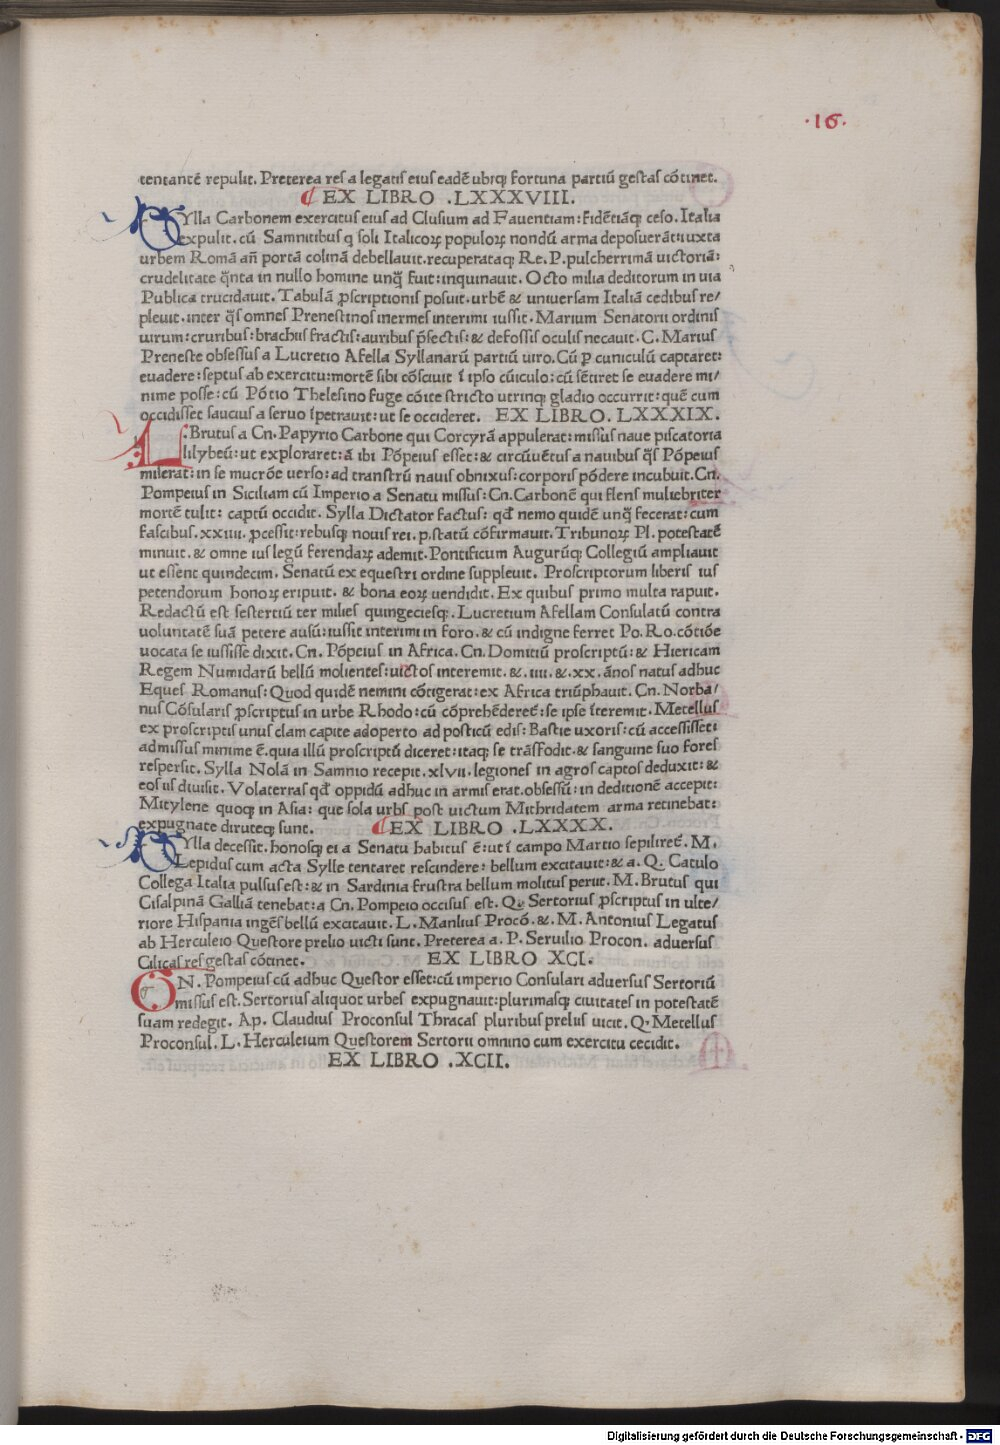 .16.
tentantē repulit. Preterea res a legatis eius eadē ubiqꝫ fortuna partiū gestas cōtinet.
EX LIBRO .LXXXVIII.
SYlla Carbonem exercitus eius ad Clusium ad Fauentiam: Fidētiāqꝫ ceso. Italia
expulit. cū Samnitibus q̄ soli Italicoꝝ populoꝝ nondū arma deposuerāt: iuxta
urbem Romā añ portā colinā debellauit. recuperataqꝫ Re. P. pulcherrimā uictoriā:
crudelitate q̄nta in nullo homine unq̄ fuit: inquinauit. Octo milia deditorum in uia
Publica trucidauit. Tabulā ꝓscriptionis posuit. urbē & uniuersam Italiā cedibus re/
pleuit. inter q̄s omnes Prenestinos inermes interimi iussit. Marium Senatorii ordinis
uirum: cruribus: brachiis fractis: auribus p̄sectis: & defossis oculis necauit. C. Marius
Preneste obsessus a Lucretio Afella Syllanarū partiū uiro. Cū ꝑ cuniculū captaret:
euadere: septus ab exercitu: mortē sibi cōsciuit ī ipso cūiculo: cū sētiret se euadere mi/
nime posse: cū Pōtio Thelesino fuge cōite stricto utrinqꝫ gladio occurrit: quē cum
occidisset saucius a seruo īpetrauit: ut se occideret. EX LIBRO. LXXXIX.
L. Brutus a Cn. Papyrio Carbone qui Corcyrā appulerat: missus naue piscatoria
lilybeū: ut exploraret: ā ibi Pōpeius esset: & circūuētus a nauibus q̄s Pōpeius
miserat: in se mucrōe uerso: ad transtrū nauis obnixus: corporis pōdere incubuit. Cn.
Pompeius in Siciliam cū Imperio a Senatu missus: Cn. Carbonē qui flens muliebriter
mortē tulit: captū occidit. Sylla Dictator factus: qđ nemo quidē unq̄ fecerat: cum
fascibus. xxiiii. ꝓcessit: rebusqꝫ nouis rei. p. statū cōfirmauit. Tribunoꝝ Pl. potestatē
minuit. & omne ius legū ferendaꝝ ademit. Pontificum Augurūqꝫ Collegiū ampliauit
ut essent quindecim. Senatū ex equestri ordine suppleuit. Proscriptorum liberis ius
petendorum honoꝝ eripuit. & bona eoꝝ uendidit. Ex quibus primo multa rapuit.
Redactū est sestertiū ter milies quingeciesqꝫ. Lucretium Afellam Consulatū contra
uoluntatē suā petere ausū: iussit interimi in foro. & cū indigne ferret Po. Ro. cōtiōe
uocata se iussisse dixit. Cn. Pōpeius in Africa. Cn. Domitiū proscriptū: & Hiericam
Regem Numidarū bellū molientes: uictos interemit. &. iiii. &. xx. ānos natus adhuc
Eques Romanus: Quod quidē nemini cōtigerat: ex Africa triūphauit. Cn. Norba/
nus Cōsularis ꝓscriptus in urbe Rhodo: cū cōprehēderet̄: se ipse īteremit. Metellus
ex proscriptis unus clam capite adoperto ad posticū edis: Bastie uxoris: cū accessisset:
admissus minime ē. quia illū proscriptū diceret: itaqꝫ se trāsfodit. & sanguine suo fores
respersit. Sylla Nolā in Samnio recepit. xlvii. legiones in agros captos deduxit: &
eos iis diuisit. Volaterras qđ oppidū adhuc in armis erat. obsessū: in deditionē accepit:
Mitylene quoqꝫ in Asia: que sola urbs post uictum Mithridatem arma retinebat:
expugnate diruteqꝫ sunt. EX LIBRO .LXXXX.
SYlla decessit. honosqꝫ ei a Senatu habitus ē: ut ī campo Martio sepiliret̄. M.
Lepidus cum acta Sylle tentaret rescindere: bellum excitauit: & a. Q. Catulo
Collega Italia pulsus est: & in Sardinia frustra bellum molitus periit. M. Brutus qui
Cisalpinā Galliā tenebat: a Cn. Pompeio occisus est. Q. Sertorius ꝓscriptus in ulte/
riore Hispania ingēs bellū excitauit. L. Manlius Procō. &. M. Antonius Legatus
ab Herculeio Questore prelio uicti sunt. Preterea a. P. Seruilio Procon. aduersus
Cilicas res gestas cōtinet. EX LIBRO XCI.
CN. Pompeius cū adhuc Questor esset: cū imperio Consulari aduersus Sertoriū
missus est. Sertorius aliquot urbes expugnauit: plurimasqꝫ ciuitates in potestatē
suam redegit. Ap. Claudius Proconsul Thracas pluribus preliis uicit. Q. Metellus
Proconsul. L. Herculeium Questorem Sertorii omnino cum exercitu cecidit.
EX LIBRO .XCII.
Digitalisierung gefördert durch die Deutsche Forschungsgemeinschaft - DFG